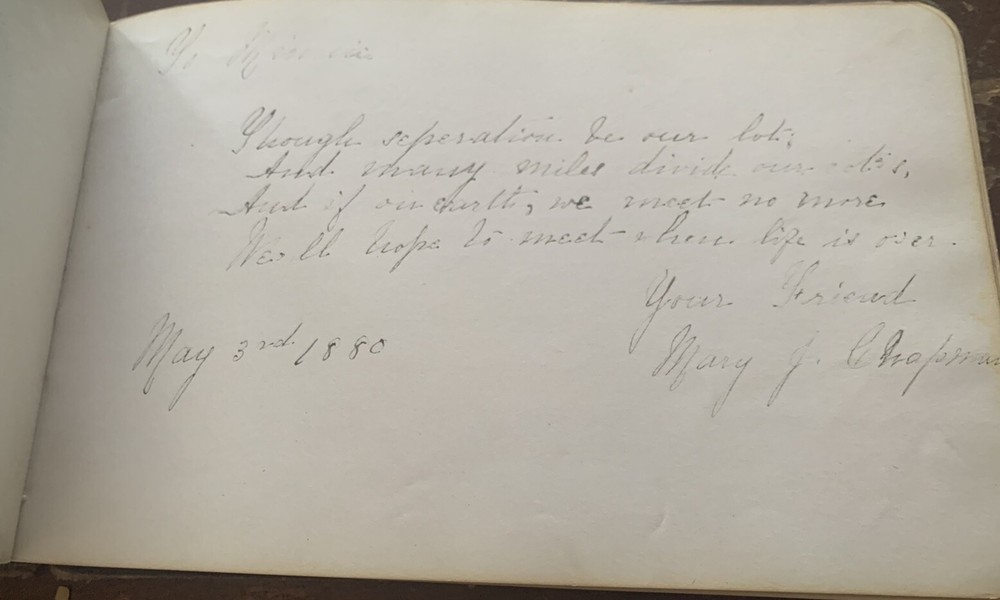 To
Though seperation be our lot,
And many miles divide our
And if on earth, we meet no more
We'll hope to meet when life is over.
Your Friend
May 3rd 1880
Mary J. Chapman